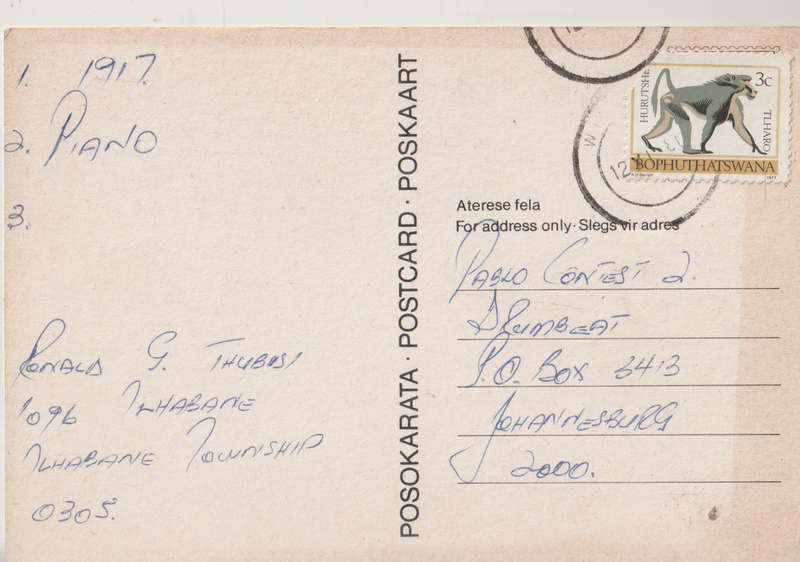 1. 1917.
2. PIANO
3.
RONALD G. THUBUSI
1096 TLHABANE
TLHABANE TOWNSHIP
0305.
POSOKARATA · POSTCARD · POSKAART
HURUTSHE
3c
TLHARO
BOPHUTHATSWANA
1977
Aterese fela
For address only · Slegs vir adres
PABLO CONTEST 2.
DRUMBEAT
P.O. BOX 3413
JOHANNESBURG
2000.